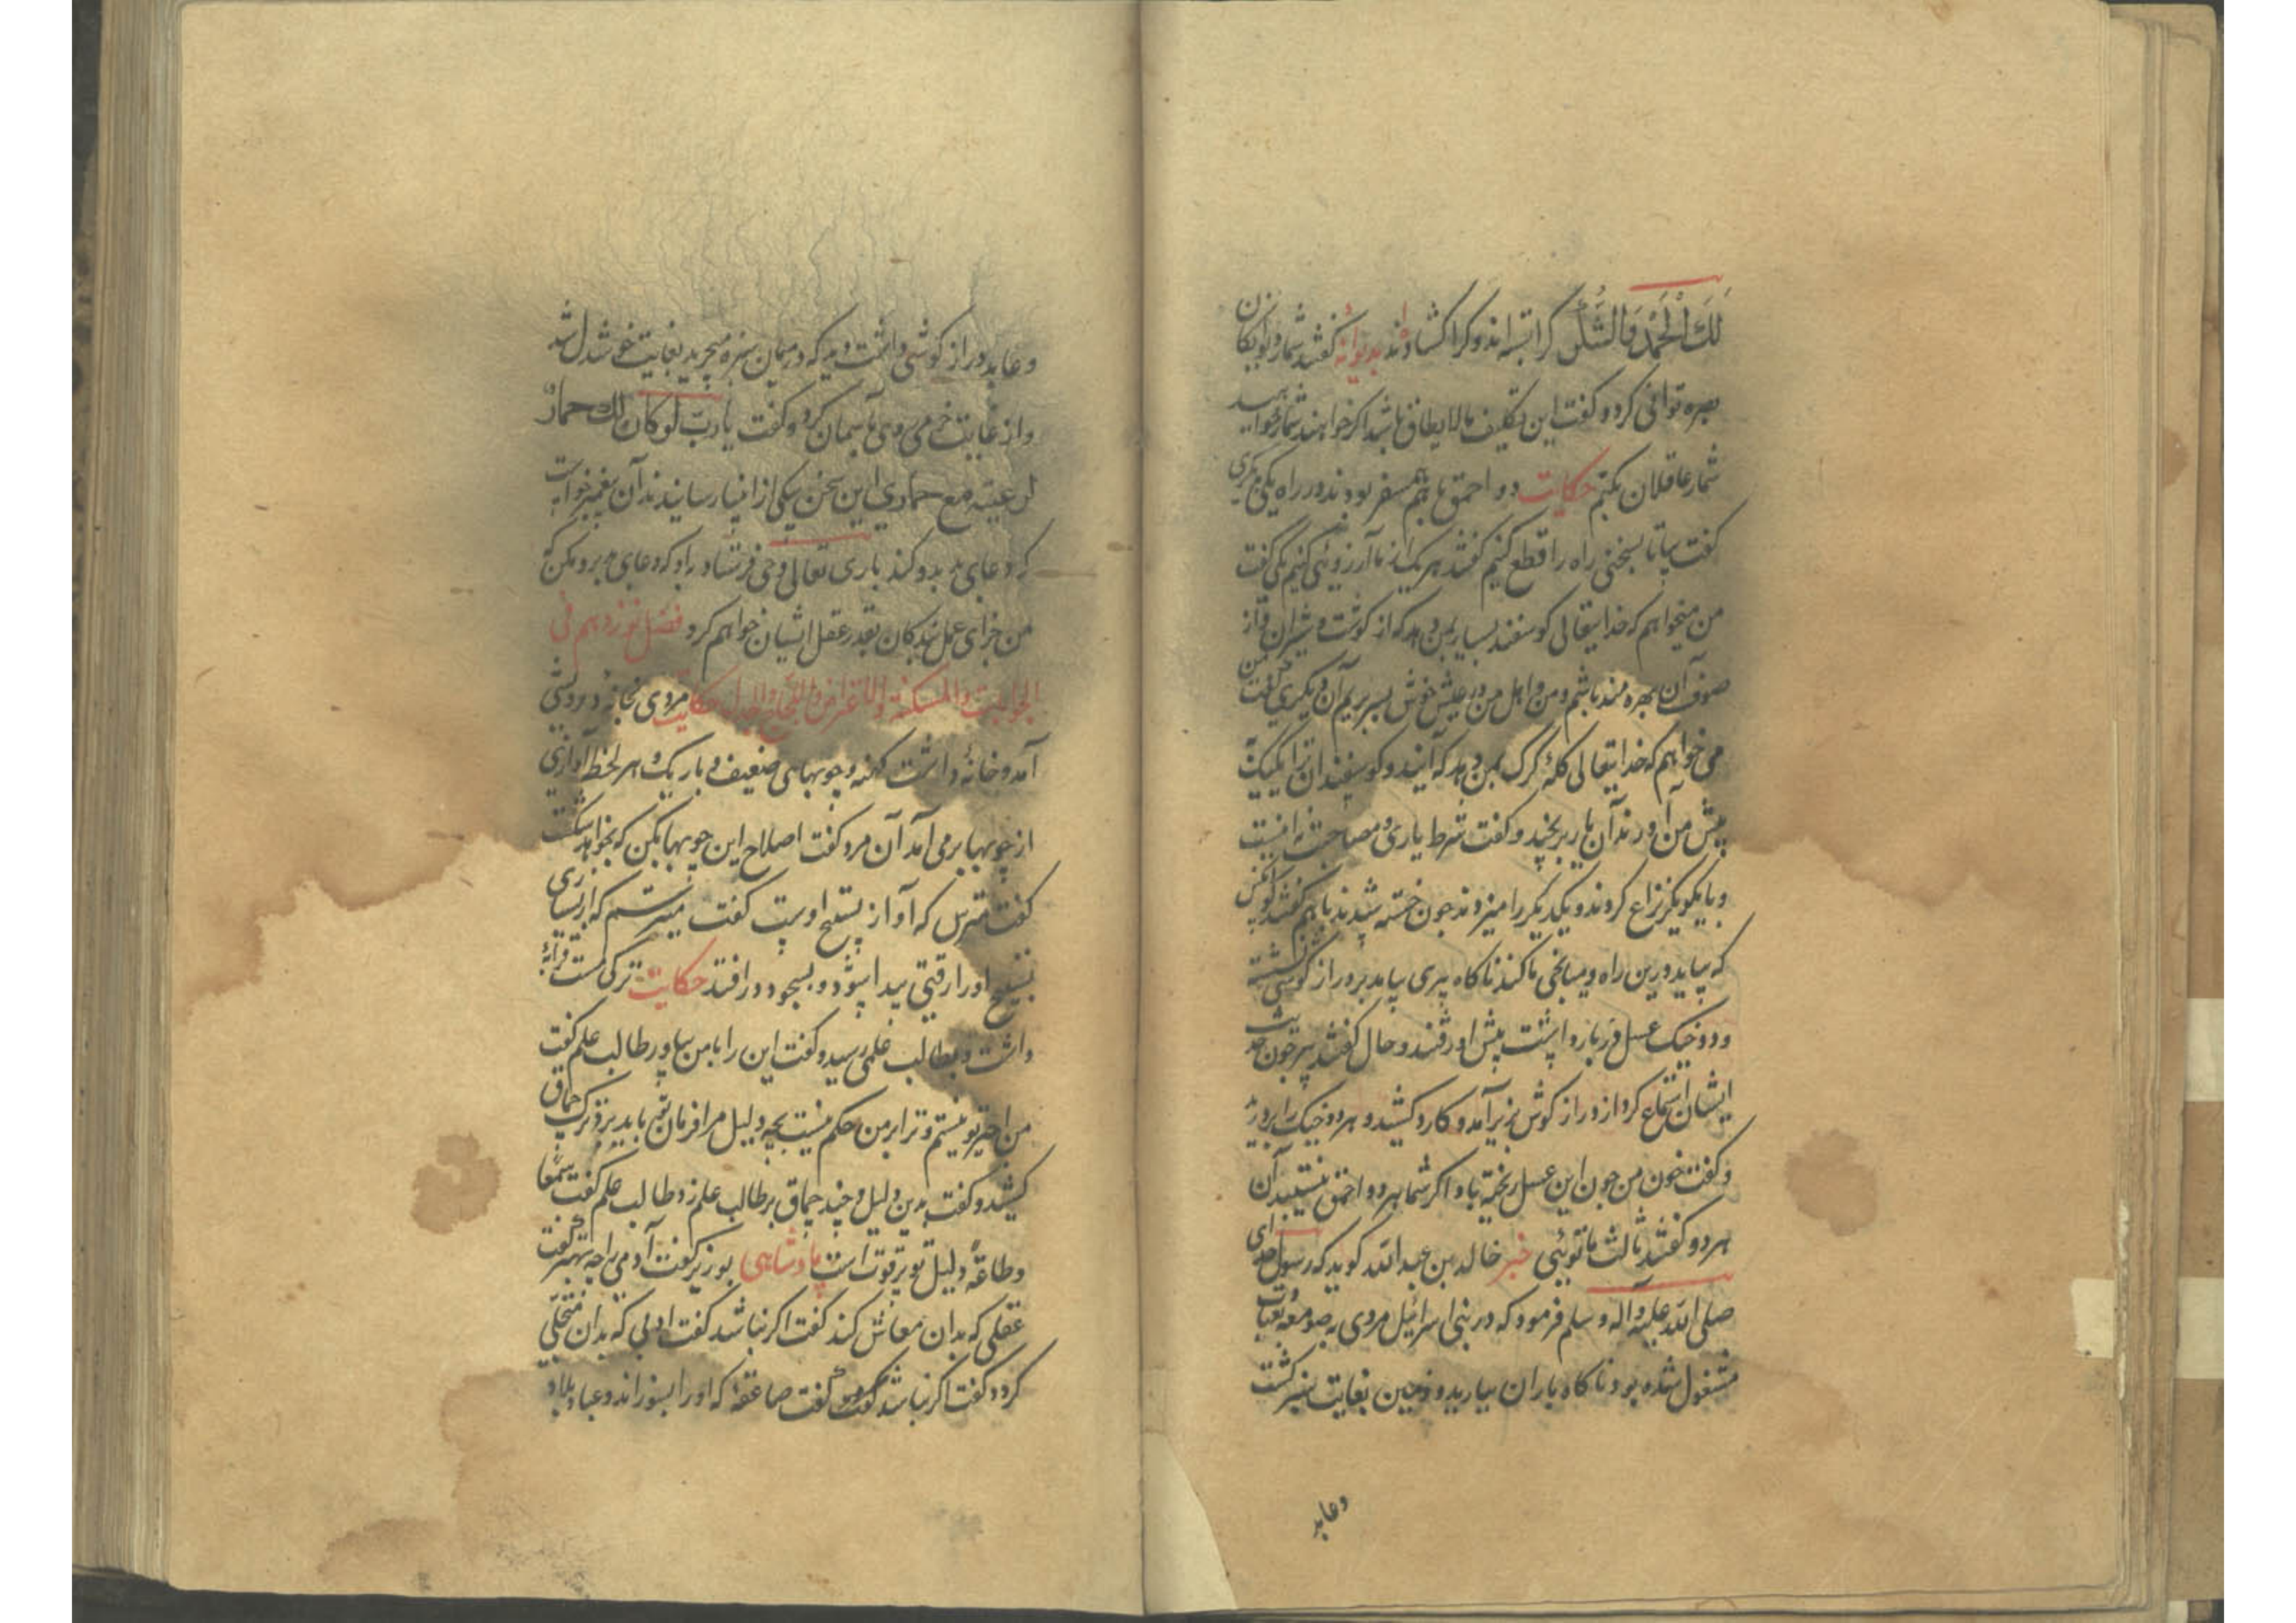 لَكَ الْحَمْدُ وَالشُّكْرُ کرا بسته اند و کرا کشاده اند بدیوانهٔ گفتند شمار دیوانگان
بصره توانی کرد و گفت این تکلیف مالایطاق باشد اگر خواهند شمار خواهید
شمار عاقلان بکنم حکایت دو احمق با هم همسفر بودند در راه یکی دیگری
گفت بیا تا بسخنی راه را قطع کنیم گفتند هر یک از ما آرزوئی کنیم یکی گفت
من میخواهم که خدایتعالی گوسفند بسیار بمن دهد که از گوشت و شیر ان و از
صوف آن بهره مند باشم و من و اهل من در عیش خوش بسر بریم آن دیگری گفت من
می خواهم که خدایتعالی کلهٔ گرگ بمن دهد که آیند و گوسفندان ترا یک یک
پیش من آورند آن یار برنجید و گفت شرط یاری و مصاحبت نه اینست
و با یکدیگر نزاع کردند و یکدیگر را میزدند چون خسته شدند با هم گفتند که اول کس
که بیاید درین راه و میانجی ما کند ناگاه پیری بیامد بر دراز گوشی نشسته
و دو خیک عسل در بار داشت پیش او رفتند و حال گفتند پیر چون حدیث
ایشان استماع کرد از دراز گوش بزیر آمد و کارد کشید و هر دو خیک را بدرید
و گفت خون من چون این عسل ریخته باد اگر شما هر دو احمق نیستید آن
هر دو گفتند ثالث ما توئی خبر خالد بن عبد الله گوید که رسول خدای
صلی الله علیه و آله و سلم فرمود که در بنی اسرائیل مردی به صومعه بعبادت
مشغول شده بود ناگاه باران ببارید و زمین بغایت سبز گشت
و عابد
و عابد دراز گوشی داشت دید که در میان سبزه میچرید بغایت خوشدل شد
و از غایت خرمی روی بآسمان کرد و گفت یا رب لو کان لك حمار
لرعیته مع حماري این سخن بیکی از انبیا رسانیدند آن پیغمبر خواست
که دعای بد بدو کند باری تعالی وحی فرستاد بدو که دعای بد برو مکن که
من جزای عمل بندگان بقدر عقل ایشان خواهم کرد فصل نوزدهم فی
الجوابات والمسکتة والاعتراض واللجاج والجدل حکایت مردی بخانهٔ درویشی
آمد و خانهٔ داشت کهنه و چوبهای ضعیف و باریک و هر لحظه آوازی
از چوبها بر می آمد آن مرد گفت اصلاح این چوبها بکن که بخواهد شکست
گفت مترس که آواز تسبیح اوست گفت میترسم که از بسیاری
تسبیح او را رقتی پیدا شود و بسجود در افتد حکایت ترکی مست قرابهٔ
داشت و بطالب علمی رسید و گفت این را با من بیاور طالب علم گفت
من اجیر تو نیستم و ترا بر من حکم نیست بچه دلیل مرا فرمان تو باید برد ترک چماق
کشید و گفت بدین دلیل و چند چماق بر طالب علم زد طالب علم گفت سمعا
و طاعة دلیل تو بر قوت است پادشاهی بوزیر گفت آدمی را چه بهتر گفت
عقلی که بدان معاش کند گفت اگر نباشد گفت ادبی که بدان متحلی
گردد گفت اگر نباشد گفت صاعقهٔ که او را بسوزاند و عباد بلاد